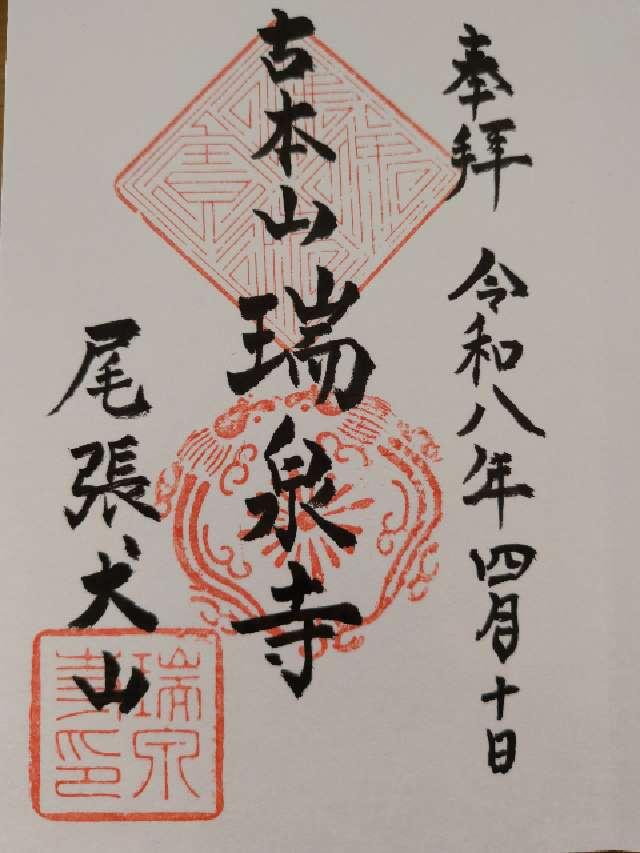 奉拝 令和八年四月十日
古本山 瑞泉寺
尾張犬山
瑞泉寺印